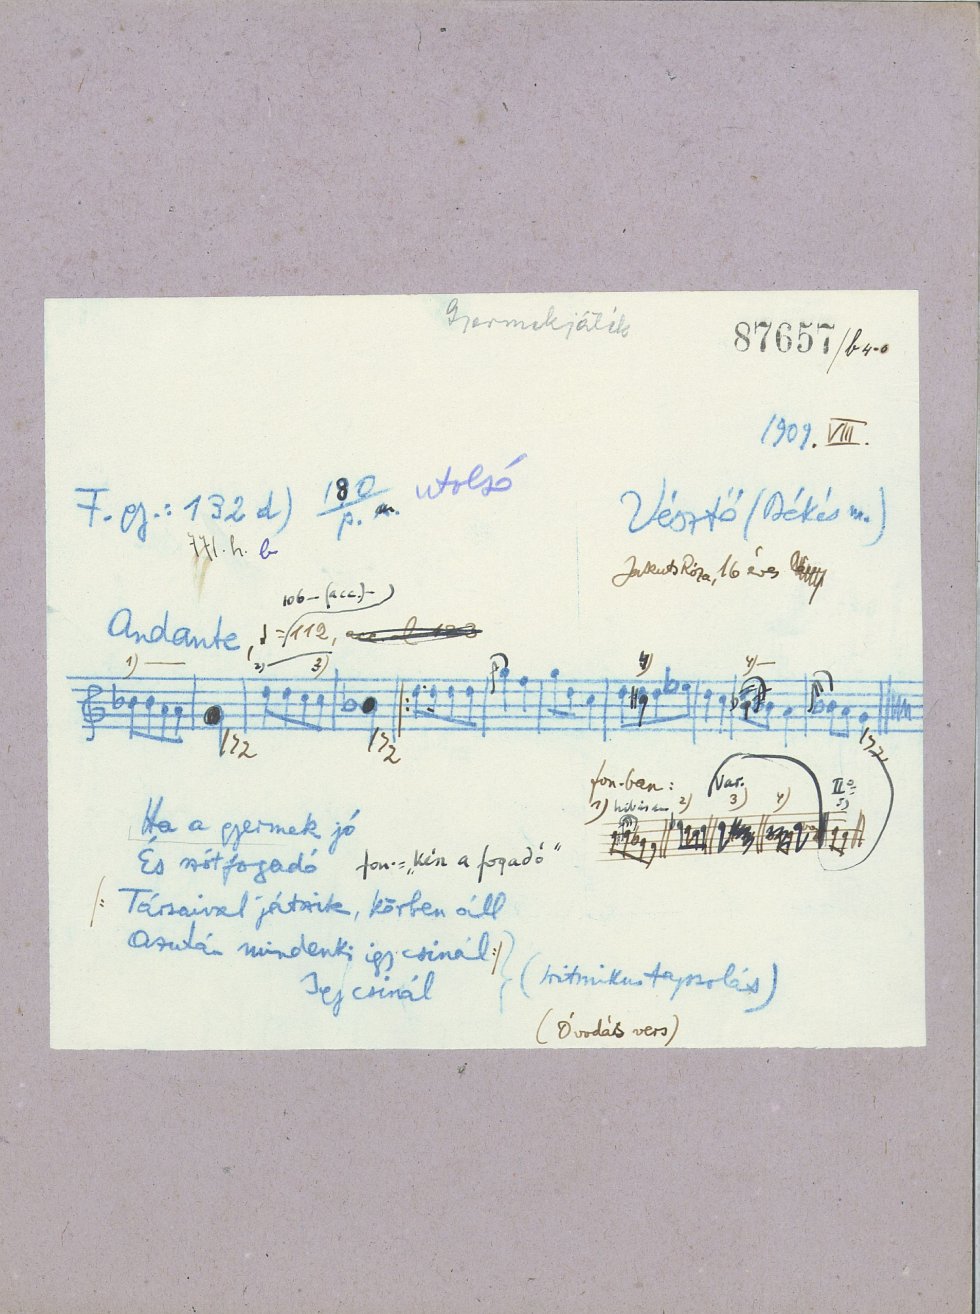 Gyermekjáték
87657/b
1909. VIII.
F. gy.: 132 d) 180 utolsó
p. m.
Vésztő (Békés m.)
771. h. b
Jakuts Róza, 16 éves
106 — (acc.) —
Andante, ♩ = 112,
1) — 2) 3) 4) 4) —
172 172 172
fon-ban: Var. II⁰:
1) hibásan 2) 3) 4) 5)
Ha a gyermek jó
És szótfogadó fon.: „kész a fogadó"
/: Társaival játszik, körben áll
Azután mindenki így csinál :/
Így csinál (ritmikus tapsolás)
(Óvodás vers)